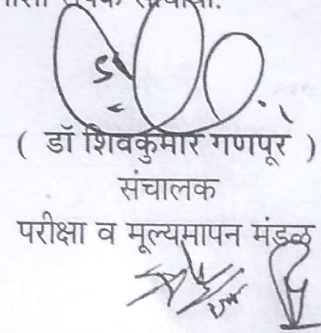 ( डॉ शिवकुमार गणपूर )
संचालक
परीक्षा व मूल्यमापन मंडळ